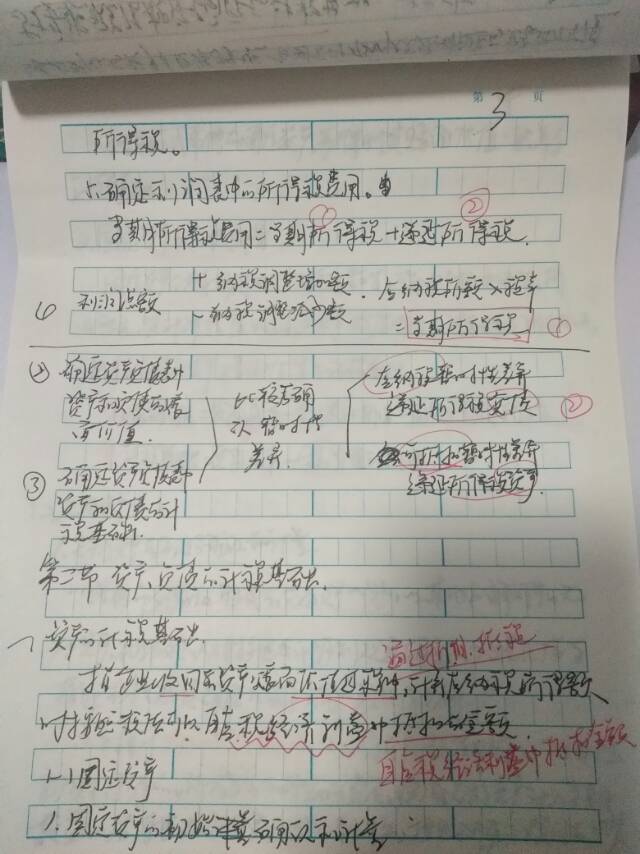 第 3 页
所得税。
六、确定利润表中的所得税费用。
当期所得税费用 = 当期所得税 + 递延所得税. ① ②
① 利润总额 + 纳税调整增加额 - 纳税调整减少额. 应纳税所额 × 税率
= 当期所得税 ①
② 确定资产负债表中
资产和负债的账
面价值.
③ 确定资产负债表中
资产和负债的计
税基础.
比较确
认暂时性
差异.
应纳税暂时性差异
递延所得税负债 ②
可抵扣暂时性差异
递延所得税资产.
第二节 资产、负债的计税基础.
一、资产的计税基础.
通过折旧.
指企业收回资产账面价值过程中,计算应纳税所得额
时按照税法可以自应税经济利益中抵扣的金额.
自应税经济利益中抵扣金额
(一)固定资产
1.固定资产的初始确认和计量